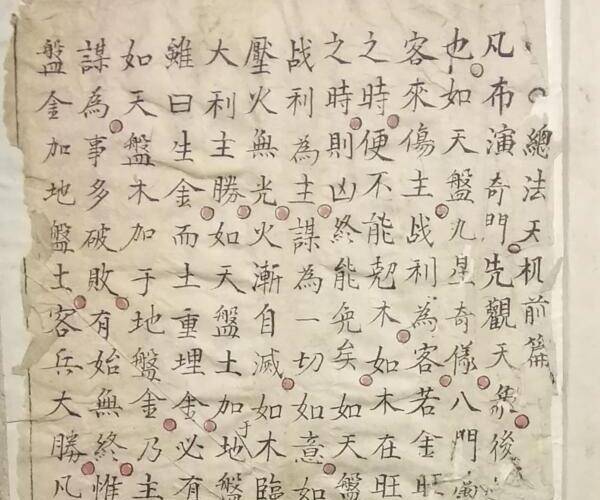 總法天机前篇
凡布演奇門先觀天象後
也如天盤九星奇儀八門
客來傷主战利為客若金旺
之時便不能尅木如木在旺
之時則凶終能免矣如天盤
战利為主謀為一切如意如
壓火無光火漸自滅如木臨
大利主勝如天盤土加于地盤
雖曰生金而土重埋金必有
如天盤木加于地盤金乃主
謀為事多破敗有始無終惟
盤金加地盤土客兵大勝凡